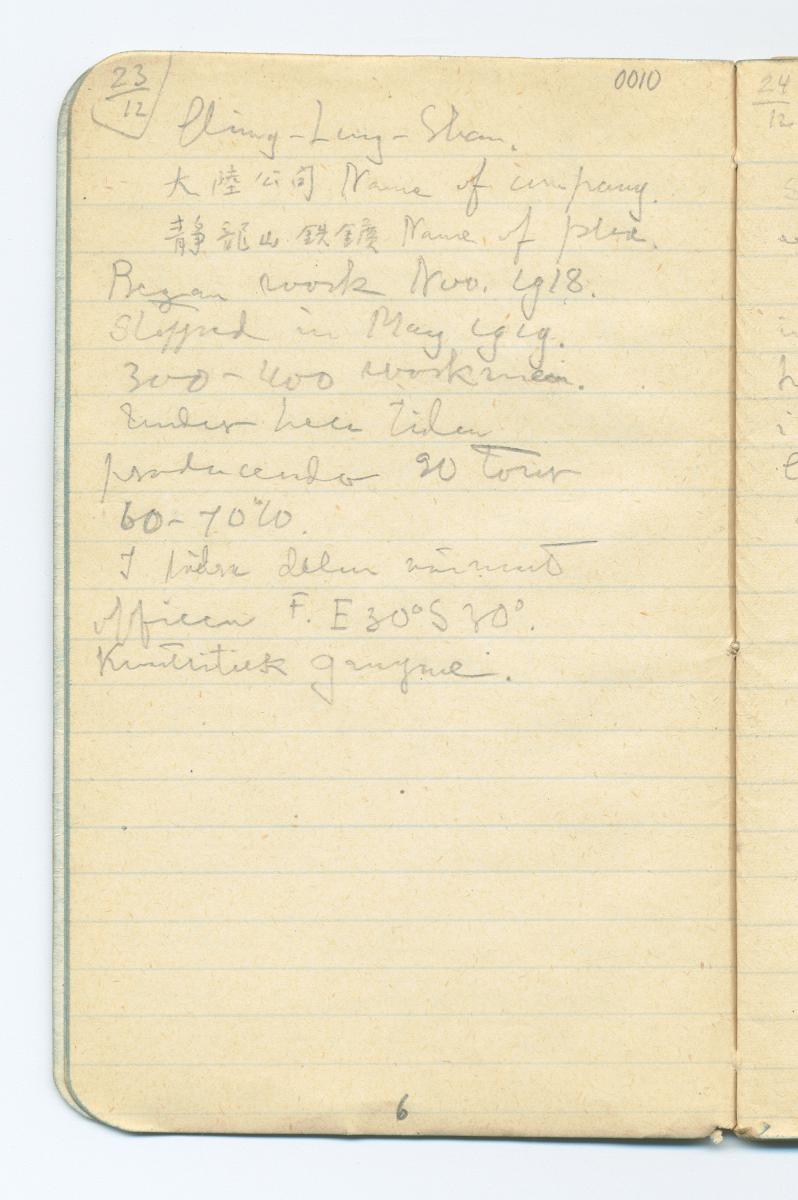 23/12
0010
Ching-Lung-Shan.
大陸公司 Name of company.
靜龍山鉄鑛 Name of place.
Began work Nov. 1918.
Stopped in May 1919.
300-400 workmen.
Under hela tiden
producerade 90 tons
60-70%.
I södra delen närmast
officen F. E30°S 30°.
Kvartsitisk
6
24/12